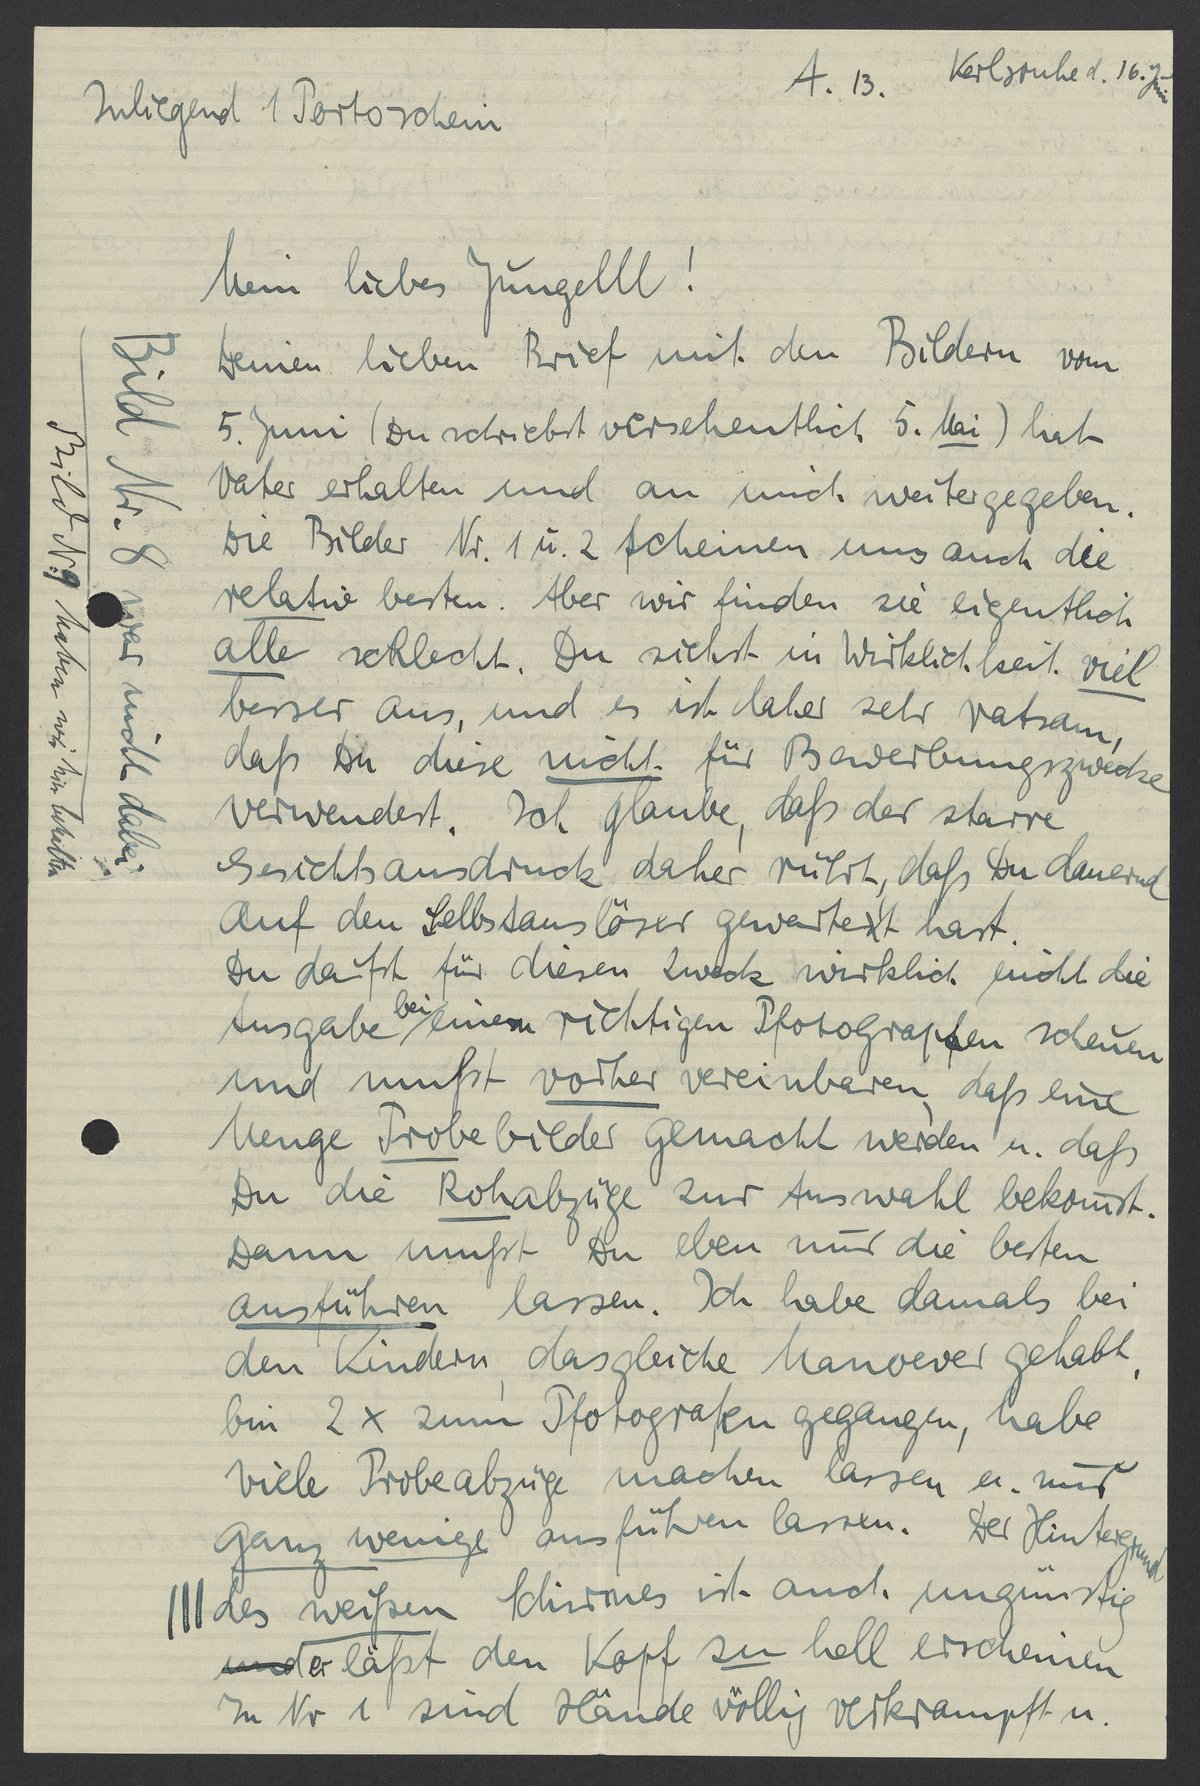 A. 13.
Karlsruhe d. 16. Juni
Inliegend 1 Portoschein
Mein liebes Jüngelll!
Deinen lieben Brief mit den Bildern vom
5. Juni (Du schriebst versehentlich 5. Mai) hat
Vater erhalten und an mich weitergegeben.
Die Bilder Nr. 1 u. 2 scheinen uns auch die
relativ besten. Aber wir finden sie eigentlich
alle schlecht. Du siehst in Wirklichkeit viel
besser aus, und es ist daher sehr ratsam,
daß Du diese nicht für Bewerbungszwecke
verwendest. Ich glaube, daß der starre
Gesichtsausdruck daher rührt, daß Du dauernd
auf den Selbstauslöser gewartet hast.
Du daŕfst für diesen Zweck wirklich nicht die
Ausgabe bei einem richtigen Pfotograpfen scheuen
und mußt vorher vereinbaren, daß eine
Menge Probebilder gemacht werden u. daß
Du die Rohabzüge zur Auswahl bekomst.
Dann mußt Du eben nur die besten
ausführen lassen. Ich habe damals bei
den Kindern, dasgleiche Manoever gehabt,
bin 2 x zum Pfotografen gegangen, habe
viele Probeabzüge machen lassen u. nur
ganz wenige ausführen lassen. Der Hintergrund
des weißen Schirmes ist auch ungünstig
und er läßt den Kopf zu hell erscheinen
In Nr 1 sind Hände völlig verkrampft u.
Bild Nr. 8 war nicht dabei.
Bild Nr. 9 haben wir hier behalten